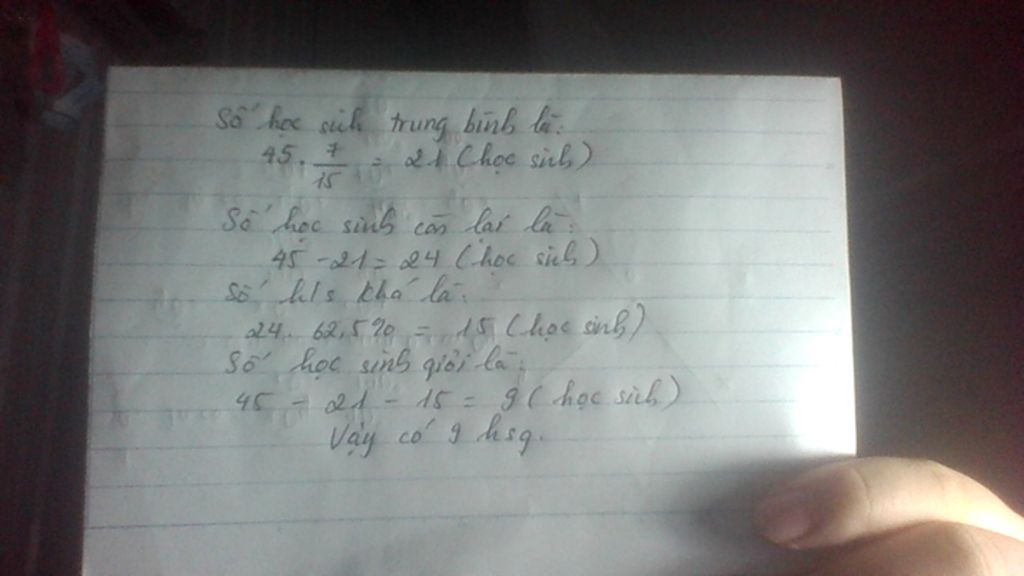 Số học sinh trung bình là:
45 . 7/15 = 21 (học sinh)
Số học sinh còn lại là:
45 - 21 = 24 (học sinh)
Số h/s khá là:
24 . 62,5% = 15 (học sinh)
Số học sinh giỏi là:
45 - 21 - 15 = 9 (học sinh)
Vậy có 9 hsg.